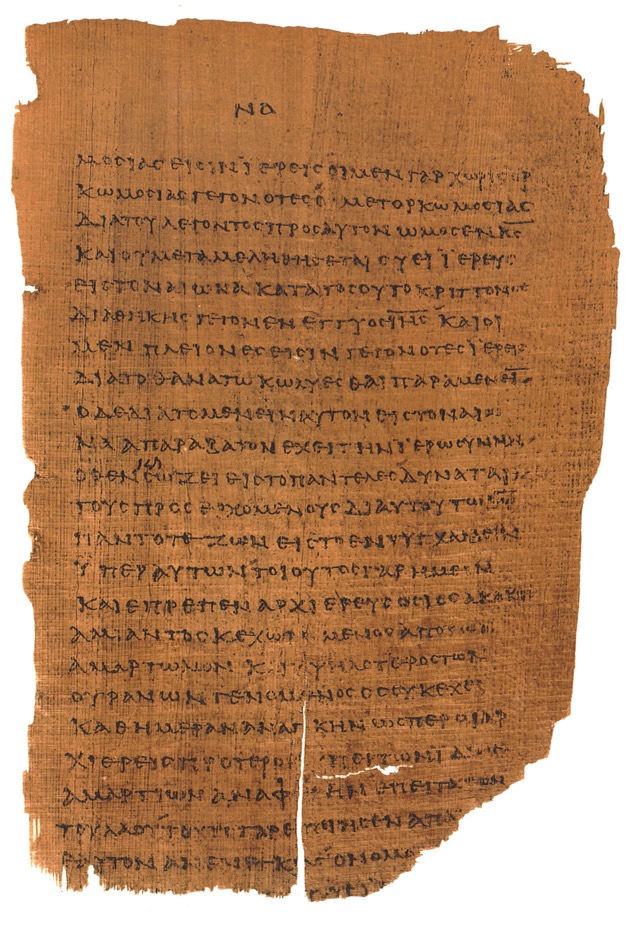 ΝΑ
ΜΟϹΙΑϹ ΕΙϹΙΝ ΪΕΡΕΙϹ ΟΙ ΜΕΝ ΓΑΡ ΧΩΡΙϹ ΟΡ
ΚΩΜΟϹΙΑϹ ΓΕΓΟΝΟΤΕϹ Ο ΜΕΤ ΟΡΚΩΜΟϹΙΑϹ
ΔΙΑ ΤΟΥ ΛΕΓΟΝΤΟϹ ΠΡΟϹ ΑΥΤΟΝ ΩΜΟϹΕΝ Κ̅Ϲ̅
ΚΑΙ ΟΥ ΜΕΤΑΜΕΛΗΘΗϹΕΤΑΙ ϹΥ ΕΙ ΪΕΡΕΥϹ
ΕΙϹ ΤΟΝ ΑΙΩΝΑ ΚΑΤΑ ΤΟϹΟΥΤΟ ΚΡΙΤΤΟΝΟϹ
ΔΙΑΘΗΚΗϹ ΓΕΓΟΝΕΝ ΕΓΓΥΟϹ Ι̅Η̅Ϲ̅ ΚΑΙ ΟΙ
ΜΕΝ ΠΛΕΙΟΝΕϹ ΕΙϹΙΝ ΓΕΓΟΝΟΤΕϹ ΪΕΡΕΙϹ
ΔΙΑ ΤΟ ΘΑΝΑΤΩ ΚΩΛΥΕϹΘΑΙ ΠΑΡΑΜΕΝΕΙ̅
Ο ΔΕ ΔΙΑ ΤΟ ΜΕΝΕΙΝ ΑΥΤΟΝ ΕΙϹ ΤΟΝ ΑΙΩ
ΝΑ ΑΠΑΡΑΒΑΤΟΝ ΕΧΕΙ ΤΗΝ ΪΕΡΩϹΥΝΗΝ
ΟΘΕΝ ϹΩΖΕΙ ΕΙϹ ΤΟ ΠΑΝΤΕΛΕϹ ΔΥΝΑΤΑΙ
ΤΟΥϹ ΠΡΟϹΕΡΧΟΜΕΝΟΥϹ ΔΙ ΑΥΤΟΥ ΤΩ
ΠΑΝΤΟΤΕ ΖΩΝ ΕΙϹ ΤΟ ΕΝΤΥΓΧΑΝΕΙΝ
ΫΠΕΡ ΑΥΤΩΝ ΤΟΙΟΥΤΟϹ ΓΑΡ ΗΜΕΙΝ
ΚΑΙ ΕΠΡΕΠΕΝ ΑΡΧΙΕΡΕΥϹ ΟϹΙΟϹ ΑΚΑΚΟϹ
ΑΜΙΑΝΤΟϹ ΚΕΧΩΡΙϹΜΕΝΟϹ ΑΠΟ ΤΩΝ
ΑΜΑΡΤΩΛΩΝ ΚΑΙ ΥΨΗΛΟΤΕΡΟϹ ΤΩΝ
ΟΥΡΑΝΩΝ ΓΕΝΟΜΕΝΟϹ ΟϹ ΟΥΚ ΕΧΕΙ
ΚΑΘ ΗΜΕΡΑΝ ΑΝΑΓΚΗΝ ΩϹΠΕΡ ΟΙ ΑΡ
ΧΙΕΡΕΙϹ ΠΡΟΤΕΡΟΝ ΫΠΕΡ ΤΩΝ ΙΔΙΩΝ
ΑΜΑΡΤΙΩΝ ΑΝΑΦ ΕΠΕΙΤΑ ΤΩΝ
ΤΟΥ ΛΑΟΥ ΤΟΥΤΟ ΓΑΡ ΕΠΟΙΗϹΕΝ ΑΠΑ
ΕΑΥΤΟΝ ΑΝΕΝΕΓΚΑϹ Ο ΝΟΜΟ